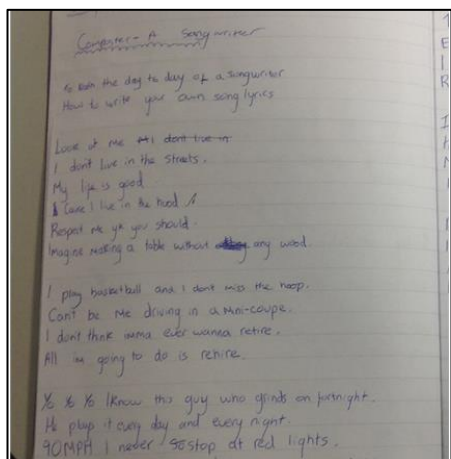 Composer - A Songwriter
the day to day of a songwriter
How to write your own song lyrics
Look at me I dont live in
I dont live in the streets.
My life is good
Cause I live in the hood
Respect me yh you should.
Imagine making a table without any wood.
I play basketball and I dont miss the hoop.
Cant be me driving in a Mini-coupe.
I dont think imma ever wanna retire.
All im going to do is rehire.
Yo Yo Yo I know this guy who grinds on fortnight.
He plays it every day and every night.
90MPH I never stop at red lights.